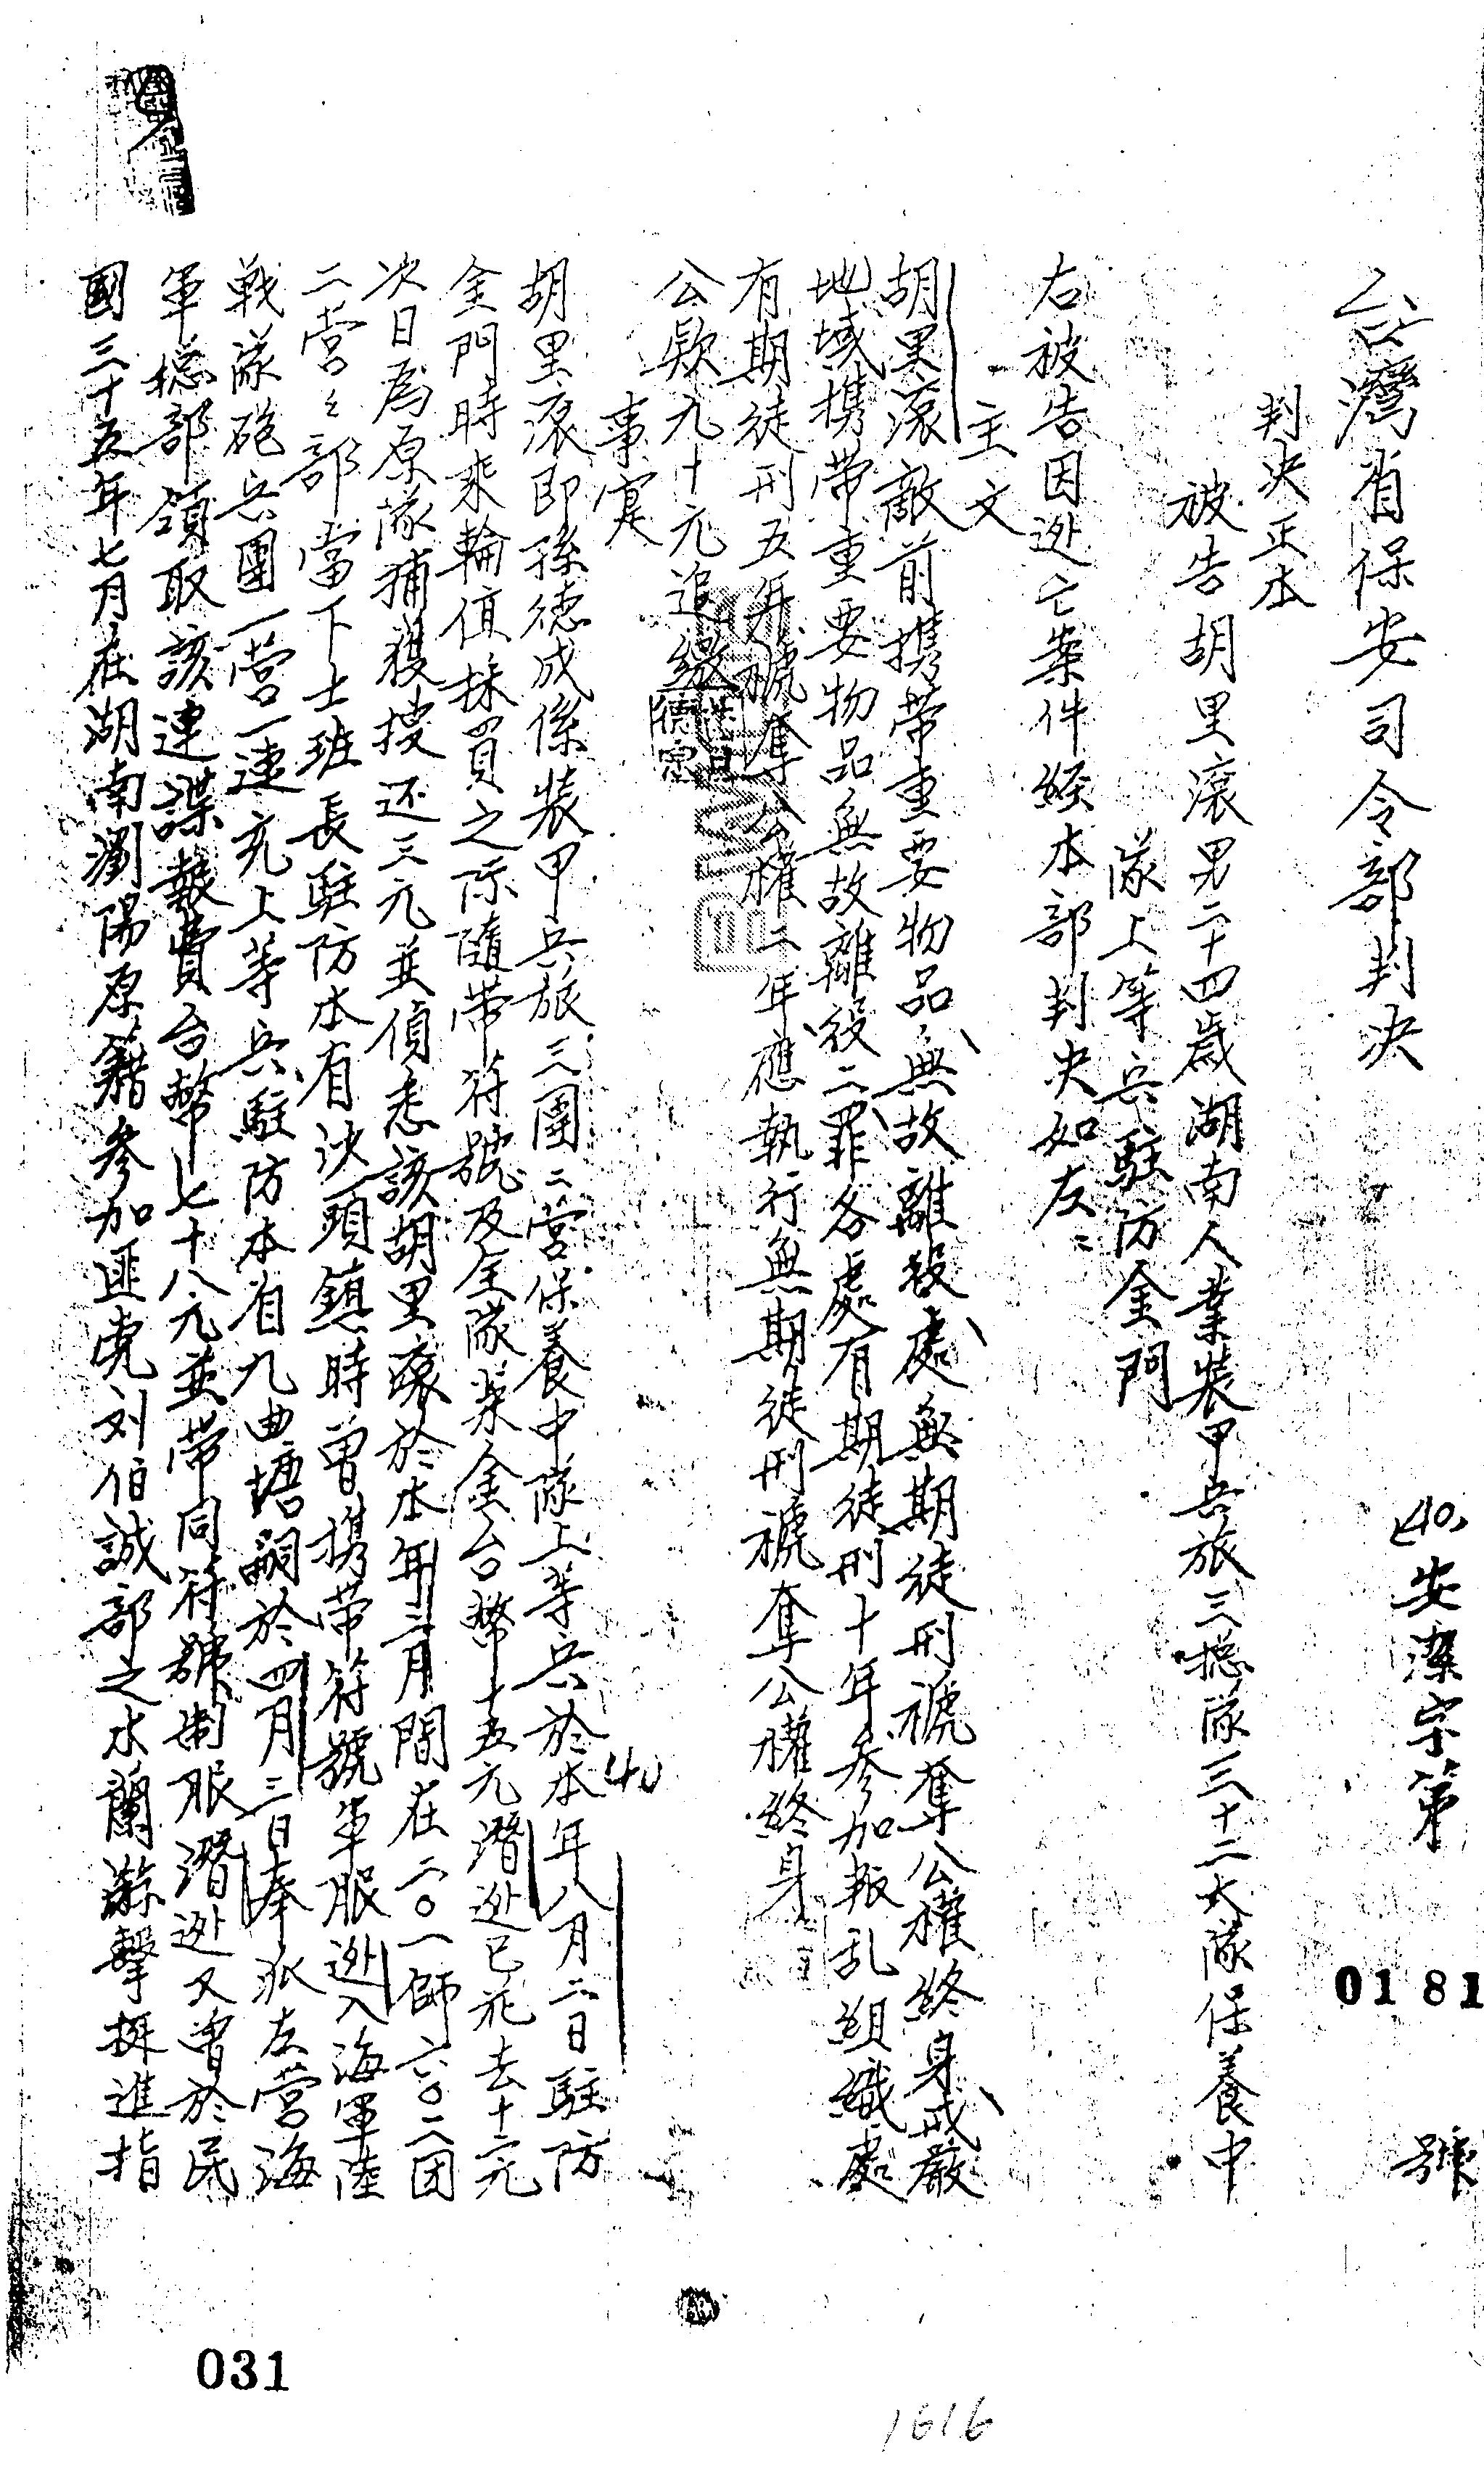 台灣省保安司令部判决
(40)安潔字第 0181 號
判决正本
被告胡里滾男二十四歲湖南人業裝甲兵旅三總隊三十二大隊保養中
隊上等兵駐防金門
右被告因逃亡案件經本部判决如左:
主文
胡里滾敵前携帶重要物品無故離役處無期徒刑褫奪公權終身戒嚴
地域携帶重要物品無故離役二罪各處有期徒刑十年參加叛乱組織處
有期徒刑五年褫奪公權二年應執行無期徒刑褫奪公權終身
公欵九十元追繳
事寔
胡里滾即孫德成係裝甲兵旅三團二營保養中隊上等兵於本(40)年八月二日駐防
金門時乘輪值採買之際隨帶符號及全隊菜金台幣十五元潛逃已花去十二元
次日為原隊捕獲搜还三元並偵悉該胡里滾於本年二月間在二〇一師六〇二团
二營々部當下士班長駐防本省汫頭鎮時曾携帶符號軍服逃入海軍陸
戰隊砲兵團一營一連充上等兵駐防本省九曲塘嗣於四月三日奉派左營海
軍總部領取該連諜報費台幣七十八元並帶同符號制服潛逃又曾於民
國三十五年七月在湖南瀏陽原籍參加匪党刘伯誠部之水蘭游擊挺進指
031
1616